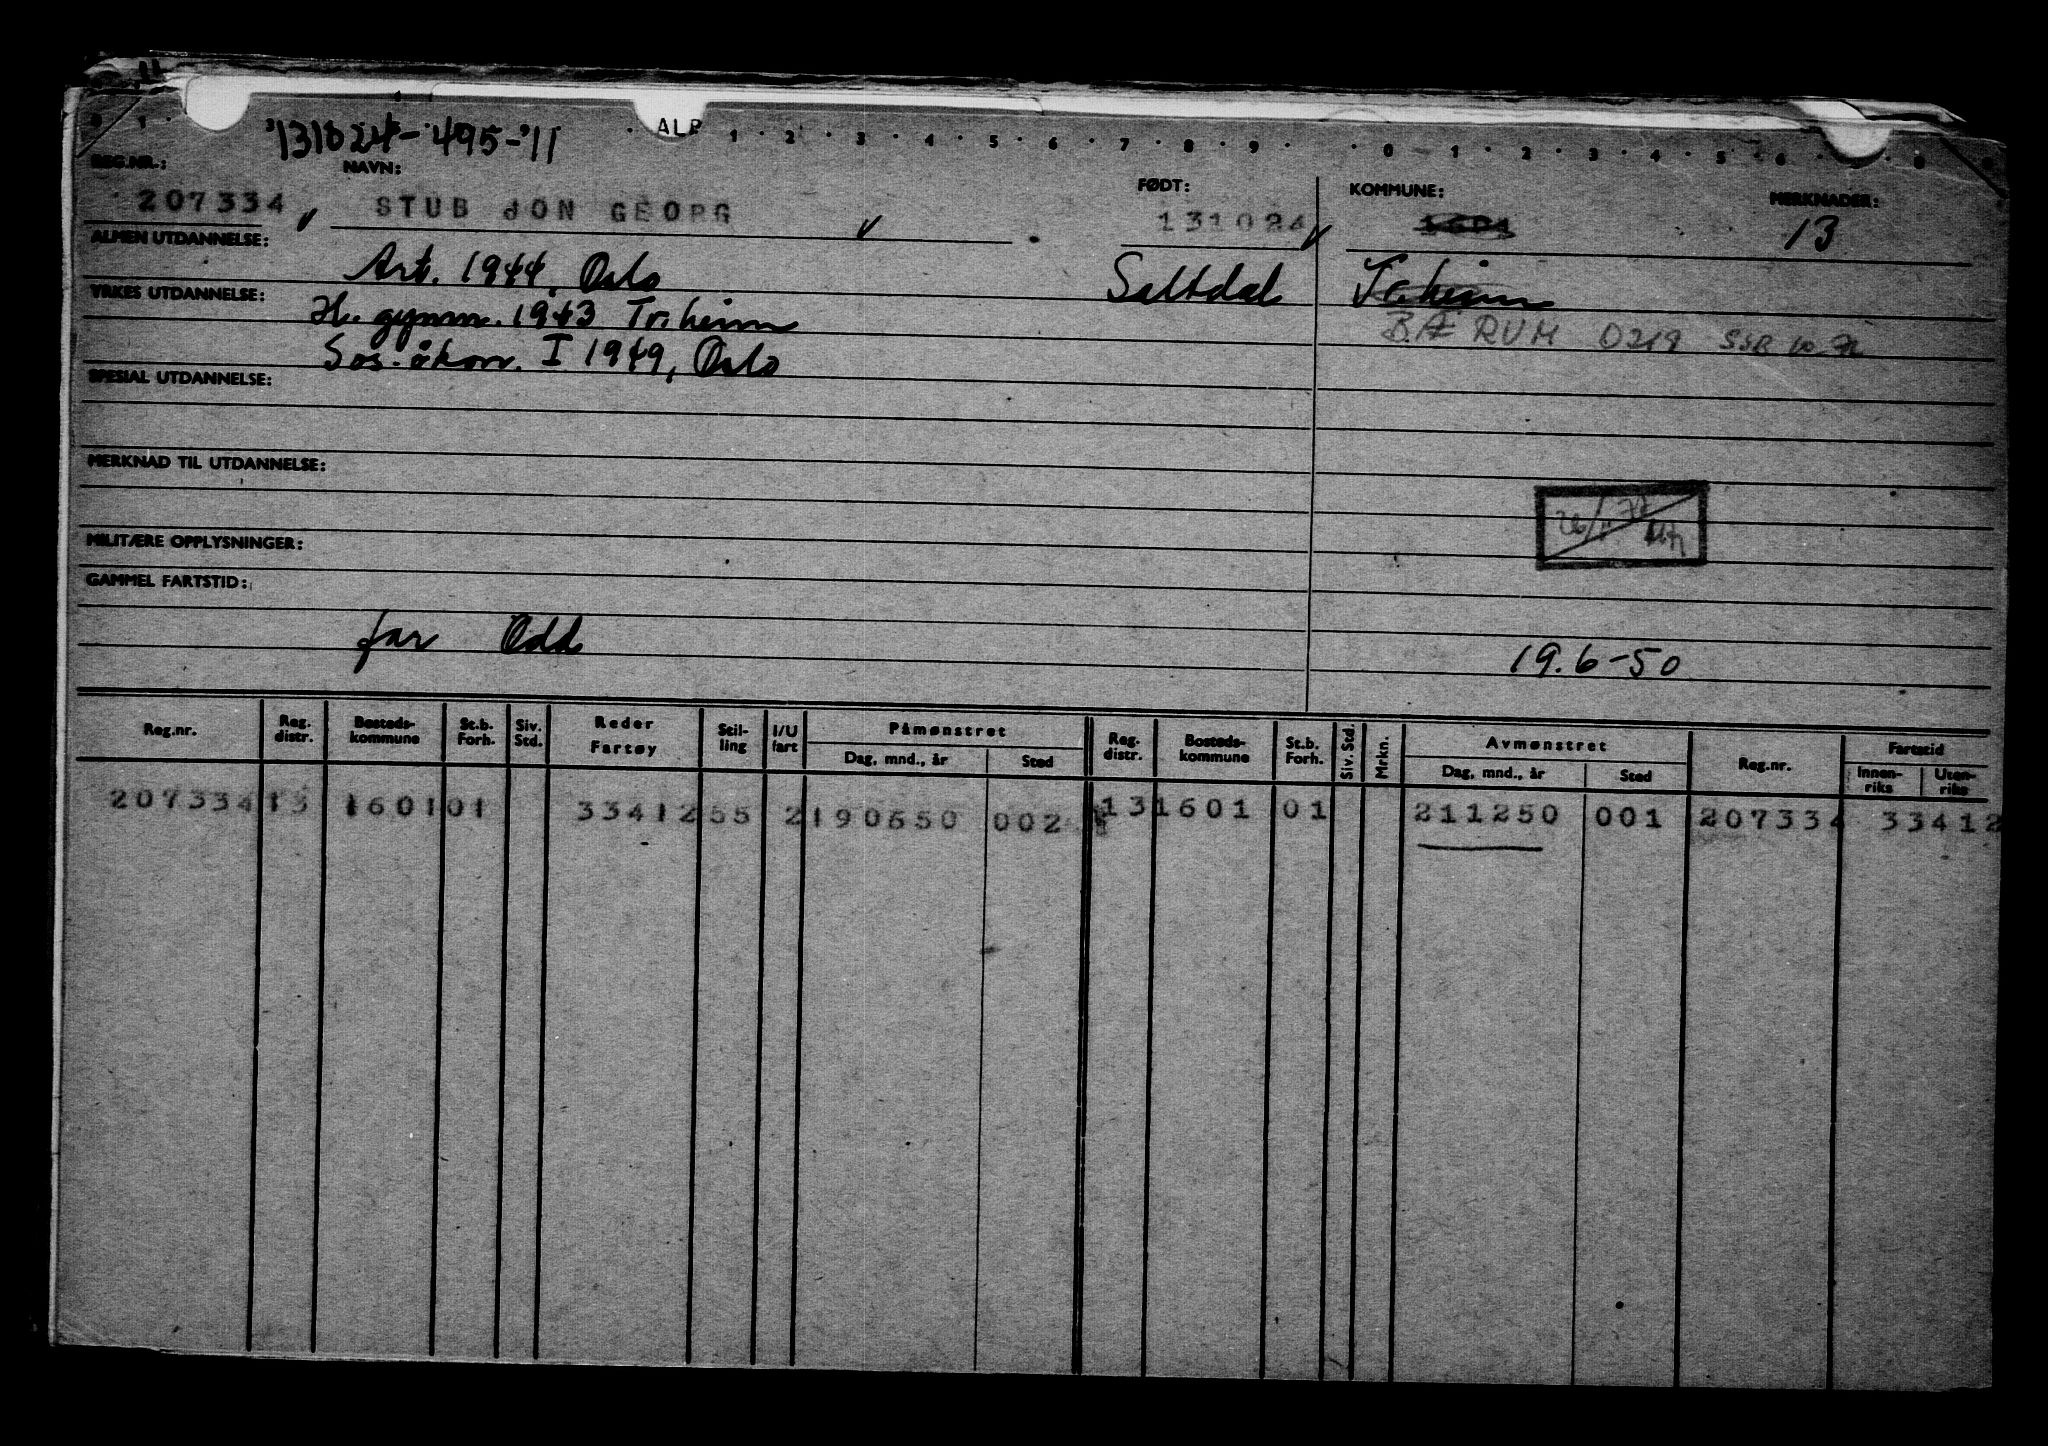 ALP
131024-495-11
0 1 1 2 3 4 5 6 7 8 9 0 1 2 3 4 5 6 8
REG.NR.: NAVN: FØDT: KOMMUNE: MERKNADER:
207334 STUB JON GEORG 131024 1601 13
ALMEN UTDANNELSE: Art. 1944, Oslo Saltdal Tr.heim
YRKES UTDANNELSE: H. gymn. 1943 Tr.heim BÆRUM 0219 SSB
Sos. økon. I 1949, Oslo
SPESIAL UTDANNELSE:
MERKNAD TIL UTDANNELSE:
26/11 72
MILITÆRE OPPLYSNINGER:
GAMMEL FARTSTID:
far Odd 19.6-50
Reg.nr. Reg. distr. Bosteds-kommune St.b. Forh. Siv. Std. Reder Fartøy Stil-ling I/U fart Påmønstret Dag, mnd., år Sted Reg. distr. Bosteds-kommune St.b. Forh. Siv. Std. Mrkn. Avmønstret Dag, mnd., år Sted Reg.nr. Fartstid Innen-riks Uten-riks
207334 13 1601 01 33412 55 2 190650 002 13 1601 01 211250 001 207334 33412